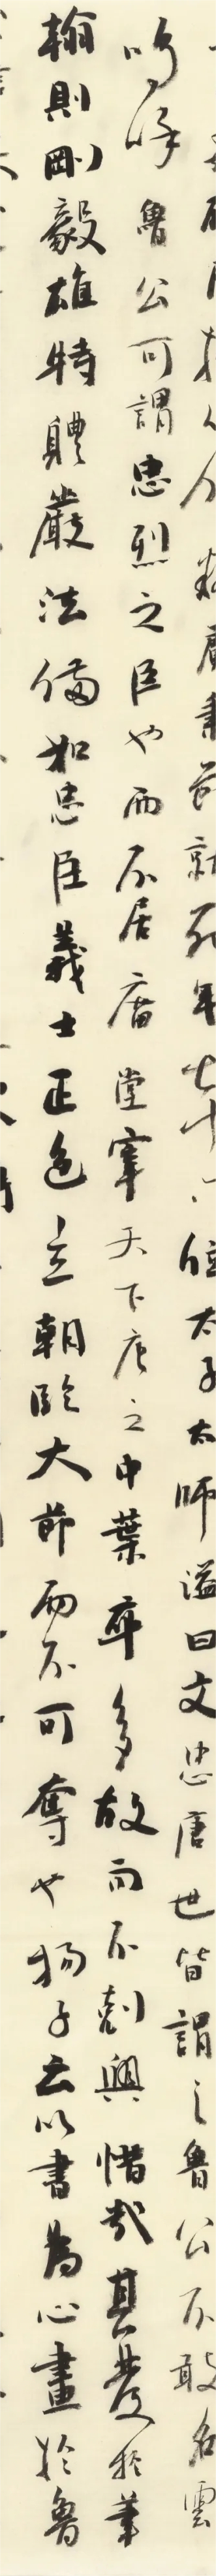 年七十六 位太子太師 謚曰文忠 唐世皆謂之魯公不敢名雲
嗚呼魯公可謂忠烈之臣也而不居廟堂宰天下唐之中葉卒多故而不剋興惜哉其發於筆
翰則剛毅雄特體嚴法備如忠臣義士正色立朝臨大節而不可奪也揚子云以書為心畫於魯